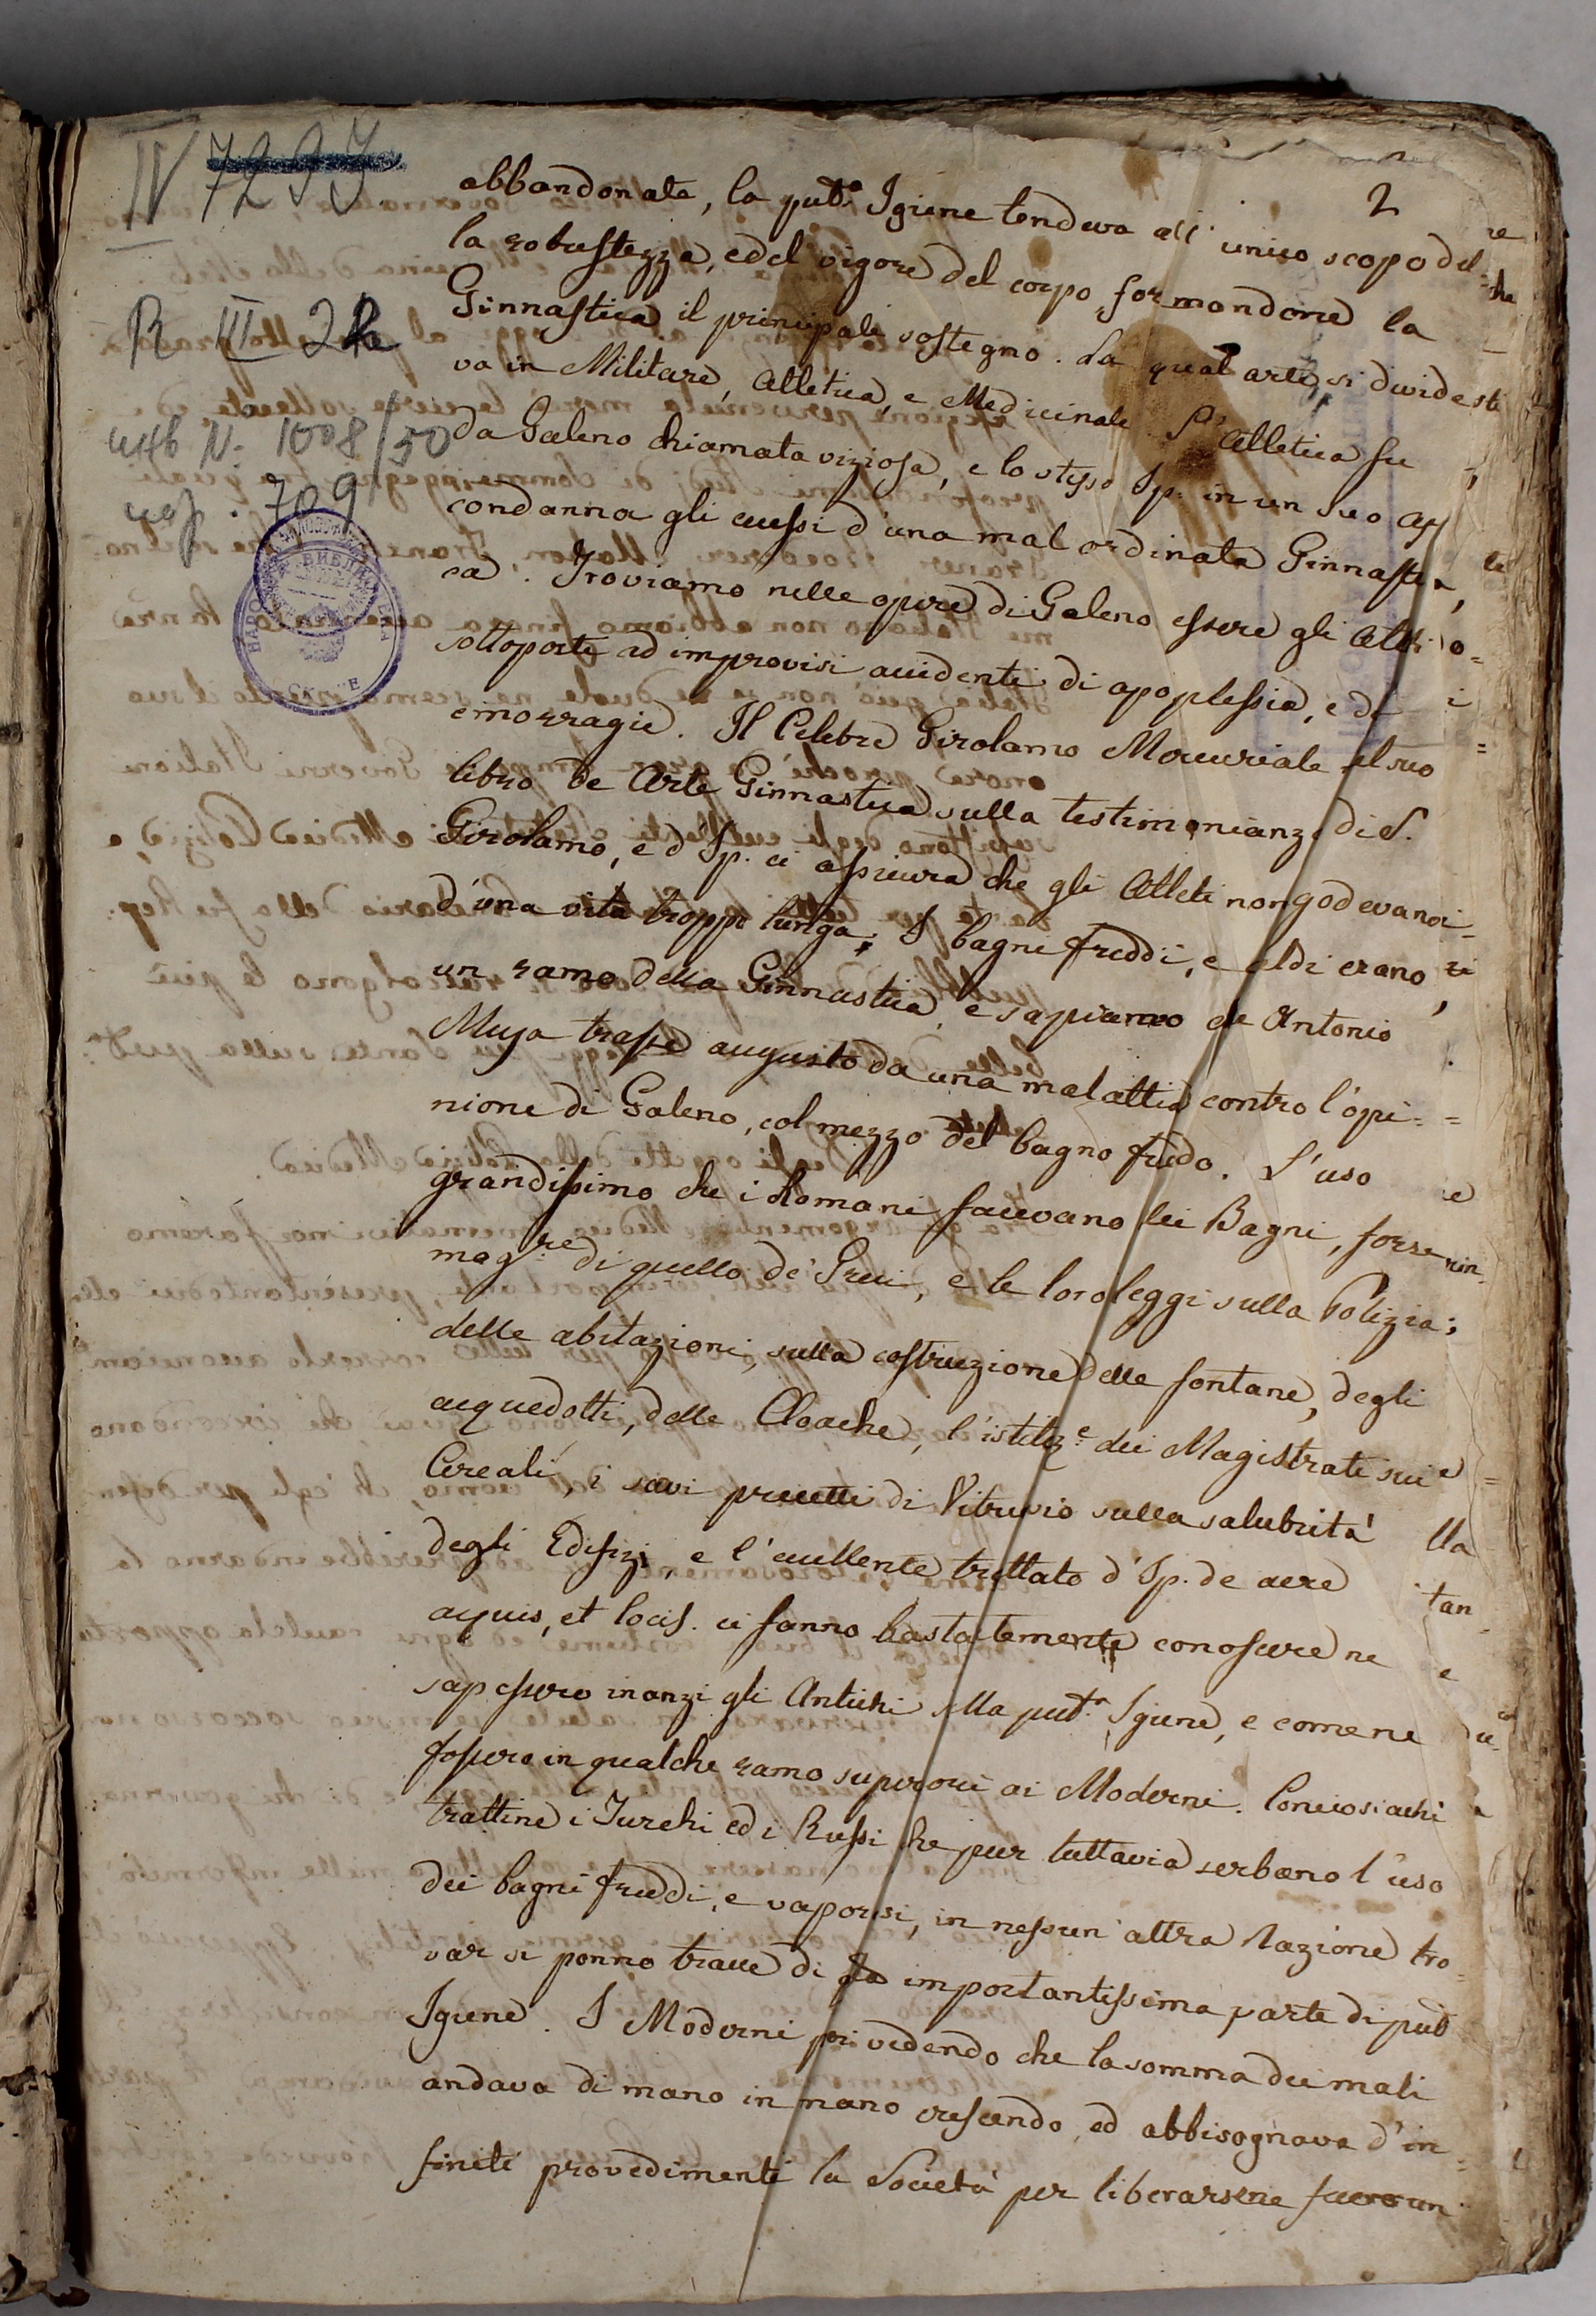 IV 7297
R III 22
инв N. 1008/50
709
НАРОДНА БИБЛИОТЕКА
2
abbandonate, la pub.ª Igiene tendeva all' unico scopo del
la robustezza, e del vigore del corpo, formandone la
Ginnastica il principale sostegno. La qual arte si divide
va in Militare, Atletica, e Medicinale. L' Atletica fu
da Galeno chiamata viziosa, e lo stesso Ip. in un suo
condanna gli eccessi d'una mal ordinata Ginnasti
ca. Troviamo nelle opere di Galeno essere gli Atleti
sottoposti ad improvisi accidenti di apoplessia, e di
emorragie. Il Celebre Girolamo Mercuriale nel suo
libro de Arte Ginnastica sulla testimonianza di S.
Girolamo, e d'Ip. ci assicura che gli Atleti non godevano
d'una vita troppo lunga; I bagni freddi, e caldi erano
un ramo della Ginnastica, e sapiamo che Antonio
Musa trasse augusto da una malattia contro l'opi=
nione di Galeno, col mezzo del bagno freddo. L'uso
grandissimo che i Romani facevano dei Bagni, forse
mag.re di quello de' Greci, e le loro leggi sulla Polizia
delle abitazioni, sulla costruzione delle fontane, degli
acquedotti, delle Cloache, l'istituz.e dei Magistrati sui
Cereali, i savi precetti di Vitruvio sulla salubrità
degli Edifizj, e l'eccellente trattato d'Ip. de aere
aquis, et locis. ci fanno bastantemente conoscere ne
sapessero inanzi gli Antichi sulla pub.ª Igiene, e come ne
fossero in qualche ramo superiori ai Moderni. Conciosiachè
trattine i Turchi ed i Russi che pur tuttavia serbano l'uso
dei bagni freddi, e vaporosi, in nessun' altra Nazione tro
var si ponno tracce di importantissima parte di pub
Igiene. I Moderni poi vedendo che la somma dei mali
andava di mano in mano crescendo, ed abbisognava d'in=
finiti provedimenti la Società per liberarsene fecero un